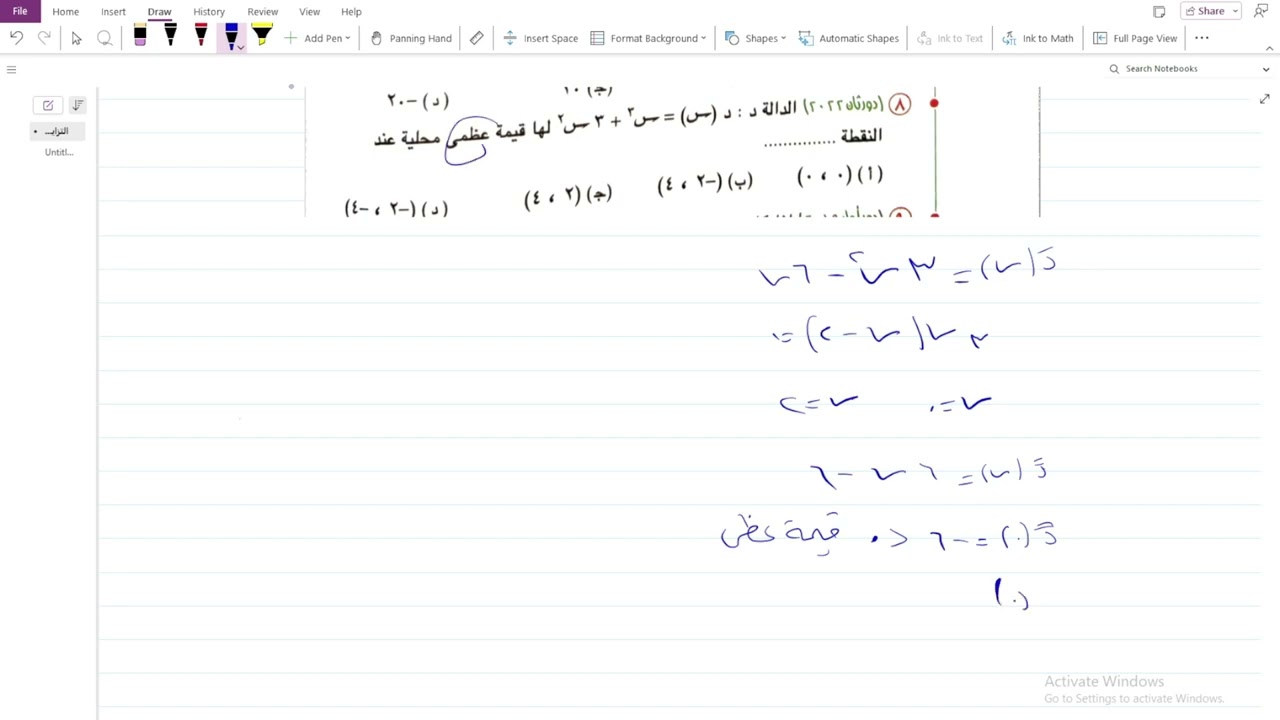 File Home Insert Draw History Review View Help Share
Add Pen Panning Hand Insert Space Format Background Shapes Automatic Shapes Ink to Text Ink to Math Full Page View
Search Notebooks
الترابـ...
Untitl...
(ج) ١٠ (د) -٢٠
٨ (دورثان ٢٠٢٢) الدالة د : د (س) = س٣ + ٣ س٢ لها قيمة عظمى محلية عند
النقطة ...............
(أ) (٠ ، ٠) (ب) (-٢ ، ٤) (ج) (٢ ، ٤) (د) (-٢ ، -٤)
دَ(س) = ٣س٢ - ٦س
٣س(س - ٢) = ٠
س = ٠ س = ٢
= ٦س - ٦
(٠) = -٦ < ٠ قيمة عظمى
(٠
Activate Windows
Go to Settings to activate Windows.